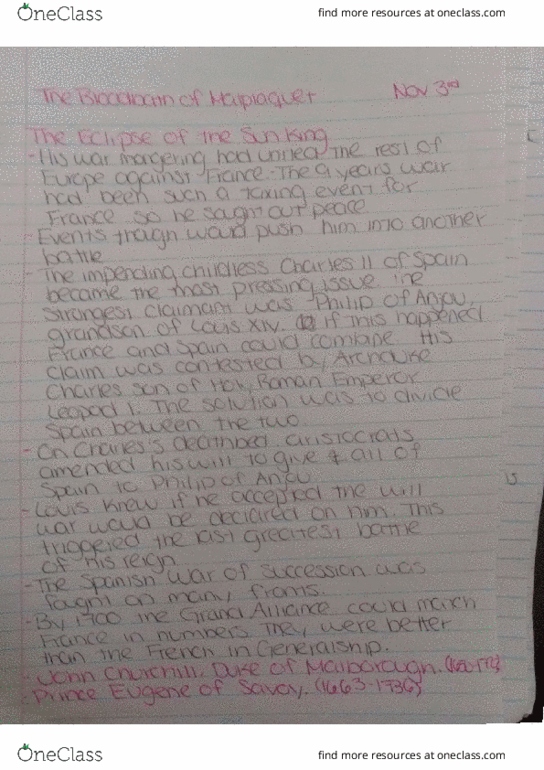 OneClass
find more resources at oneclass.com
The Bloodbath of Malplaquet Nov 3rd
The Eclipse of the Sun King
- His war mongering had united the rest of
Europe against France. The 9 years war
had been such a taxing event for
France so he saught out peace
- Events though would push him into another
battle
- The impending childless Charles II of Spain
became the most pressing issue the
strongest claimant was Philip of Anjou,
grandson of Louis XIV. if this happened
France and Spain could combine. His
claim was contested by Archduke
Charles son of Holy Roman Emperor
Leopold I. The solution was to divide
Spain between the two
- On Charles's deathbed aristocrats
amended his will to give all of
Spain to Philip of Anjou
- Louis knew if he accepted the will
war would be declared on him. This
triggered the last greatest battle
of his reign
- The Spanish War of Succession was
fought on many fronts.
- By 1700 the Grand Alliance could match
France in numbers they were better
than the French in Generalship.
- John Churchill, Duke of Marlborough.
- Prince Eugene of Savoy. (1663-1736)
OneClass
find more resources at oneclass.com